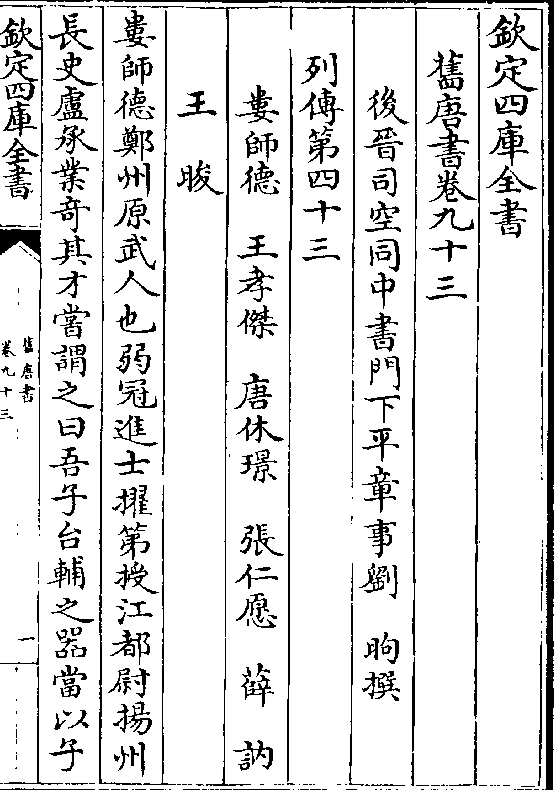 欽定四庫全書
舊唐書卷九十三
後晉司空同中書門下平章事劉 昫撰
列傳第四十三
婁師德 王孝傑 唐休璟 張仁愿 薛訥
王晙
婁師德鄭州原武人也弱冠進士擢第授江都尉揚州
長史盧承業奇其才嘗謂之曰吾子台輔之器當以子
欽定四庫全書
舊唐書
卷九十三
一